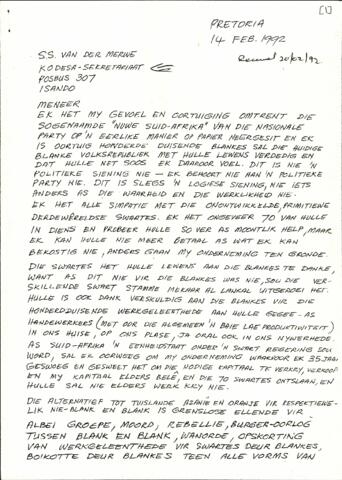 [1]
PRETORIA
14 FEB. 1992
S.S. VAN DER MERWE
20/02/92
KODESA-SEKRETARIAAT
POSBUS 307
ISANDO
MENEER
EK HET MY GEVOEL EN OORTUIGING OMTRENT DIE
SOGENAAMDE "NUWE SUID-AFRIKA" VAN DIE NASIONALE
PARTY OP 'N EERLIKE MANIER OP PAPIER NEERGESIT EN EK
IS OORTUIG HONDERDE DUISENDE BLANKES SAL DIE HUIDIGE
BLANKE VOLKSREPUBLIEK MET HULLE LEWENS VERDEDIG EN
DAT HULLE NET SOOS EK DAAROOR VOEL. DIT IS NIE 'N
POLITIEKE SIENING NIE – EK BEHOORT NIE AAN 'N POLITIEKE
PARTY NIE. DIT IS SLEGS 'N LOGIESE SIENING, NIE IETS
ANDERS AS DIE WAARHEID EN DIE WERKLIKHEID NIE.
EK HET ALLE SIMPATIE MET DIE ONONTWIKKELDE, PRIMITIEWE
DERDEWÊRELDSE SWARTES. EK HET ONGEVEER 70 VAN HULLE
IN DIENS EN PROBEER HULLE SO VER AS MOONTLIK HELP, MAAR
EK KAN HULLE NIE MEER BETAAL AS WAT EK KAN
BEKOSTIG NIE, ANDERS GAAN MY ONDERNEMING TEN GRONDE.
DIE SWARTES HET HULLE LEWENS AAN DIE BLANKES TE DANKE,
WANT AS DIT NIE VIR DIE BLANKES WAS NIE, SOU DIE VER-
SKILLENDE SWART STAMME MEKAAR AL LANKAL UITGEROEI HET.
HULLE IS OOK DANK VERSKULDIG AAN DIE BLANKES VIR DIE
HONDERDDUISENDE WERKGELEENTHEDE AAN HULLE GEGEE – AS
HANDEWERKERS (MET OOR DIE ALGEMEEN 'N BAIE LAE PRODUKTIWITEIT)
IN ONS HUISE, OP ONS PLASE, JA ORAL OOK IN ONS NYWERHEDE.
AS SUID-AFRIKA 'N EENHEIDSTAAT ONDER 'N SWART REGERING SOU
WORD, SAL EK OORWEEG OM MY ONDERNEMING WAARVOOR EK 35 JAAR
GESWOEG EN GESWEET HET OM DIE NODIGE KAPITAAL TE VERKRY, VERKOOP
EN MY KAPITAAL ELDERS BELÊ, EN DIE 70 SWARTES ONTSLAAN, EN
HULLE SAL NIE ELDERS WERK KRY NIE.
DIE ALTERNATIEF TOT TUISLANDE AZANIË EN ORANJE VIR RESPEKTIEWE-
LIK NIE-BLANK EN BLANK IS GRENSLOSE ELLENDE VIR
ALBEI GROEPE, MOORD, REBELLIE, BURGER-OORLOG
TUSSEN BLANK EN BLANK, WANORDE, OPSKORTING
VAN WERKGELEENTHEDE VIR SWARTES DEUR BLANKES,
BOIKOTTE DEUR BLANKES TEEN ALLE VORMS VAN